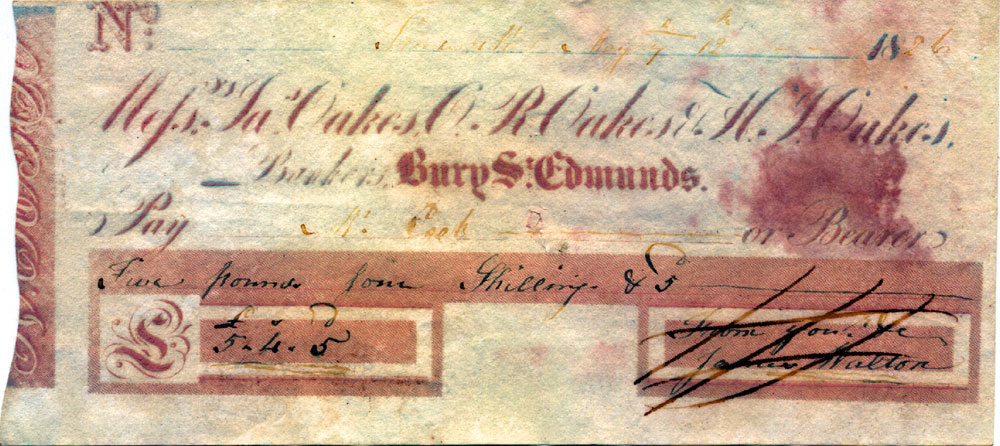 No.
May 12th 1836
Messrs. Jas. Oakes, O. R. Oakes, & H. J. Oakes,
Bankers, Bury St. Edmunds.
Pay Mr. or Bearer
Five pounds four Shillings & 5d
£ s d
£ 5-4-5
James Walton